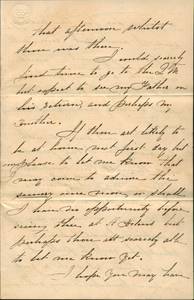 that afternoon whilst
there was there.
I would scarcely
find time to go to the
but expect to see my Father on
his return and perhaps my
mother.
If thou art likely to
be at home next first day but
one please to let me know that I
may come to admire the
scenery once more or shall
I have no opportunity before
seeing thee at
perhaps thou art scarcely able
to let me know yet.
I hope you may have